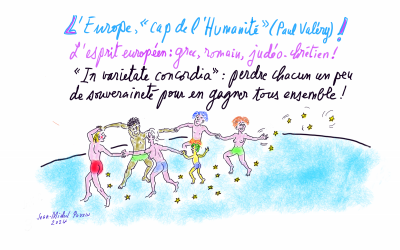 L'Europe, "cap de l'Humanité" (Paul Valéry) !
L'esprit européen : grec, romain, judéo-chrétien !
"In varietate concordia" : perdre chacun un peu
de souveraineté pour en gagner tous ensemble !
Jean-Michel
2024